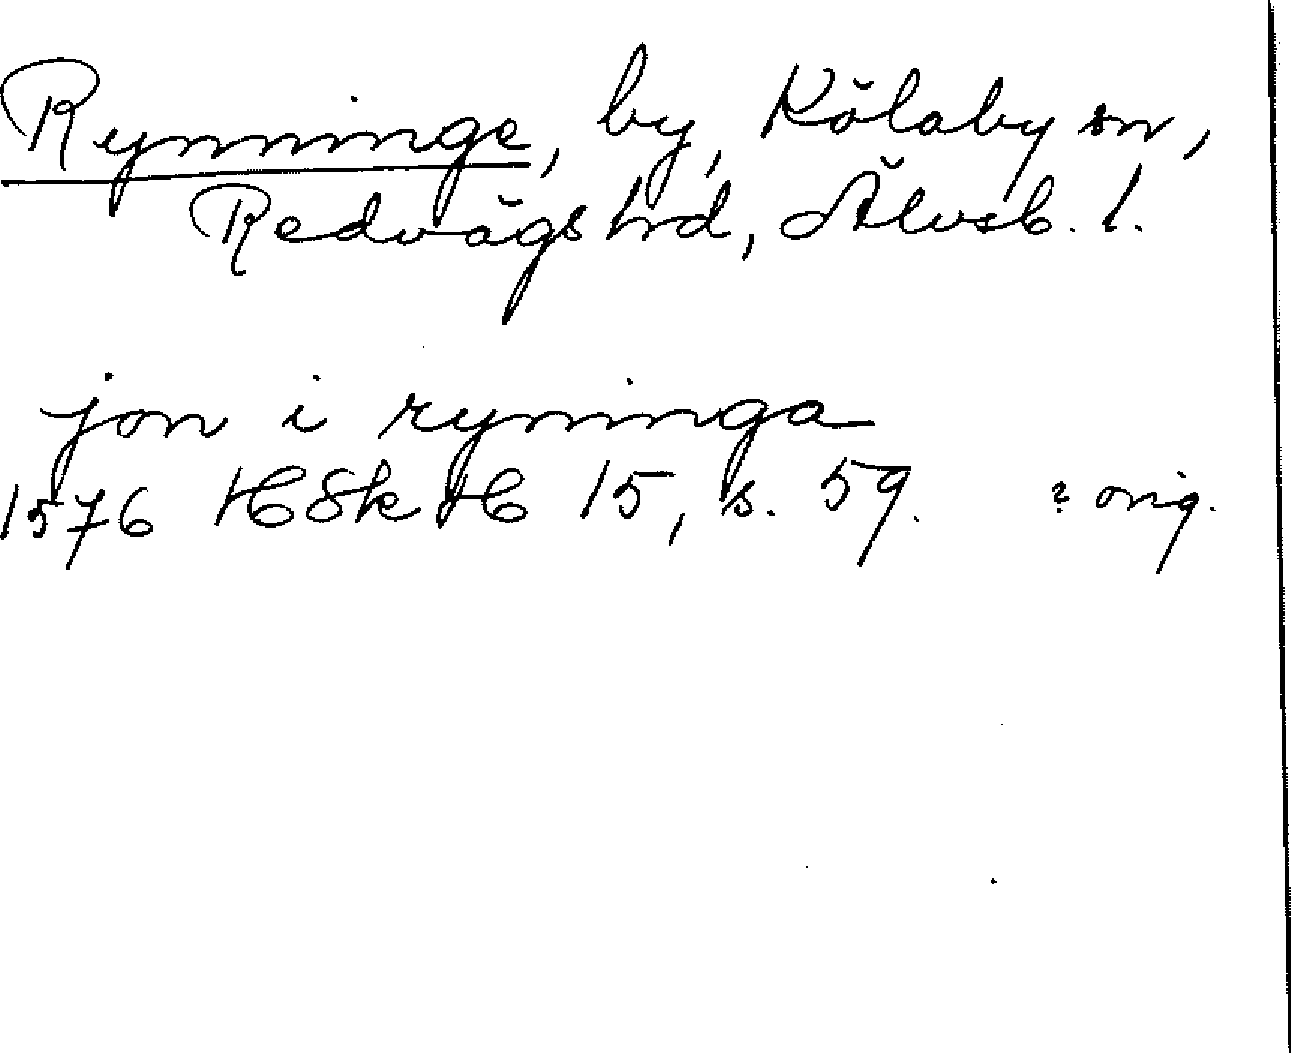 Rynninge, by, Kölaby sn,
Redvägs hrd, Älvsb. l.
jon i ryninga
1576 HSkH 15, s. 59. ? orig.